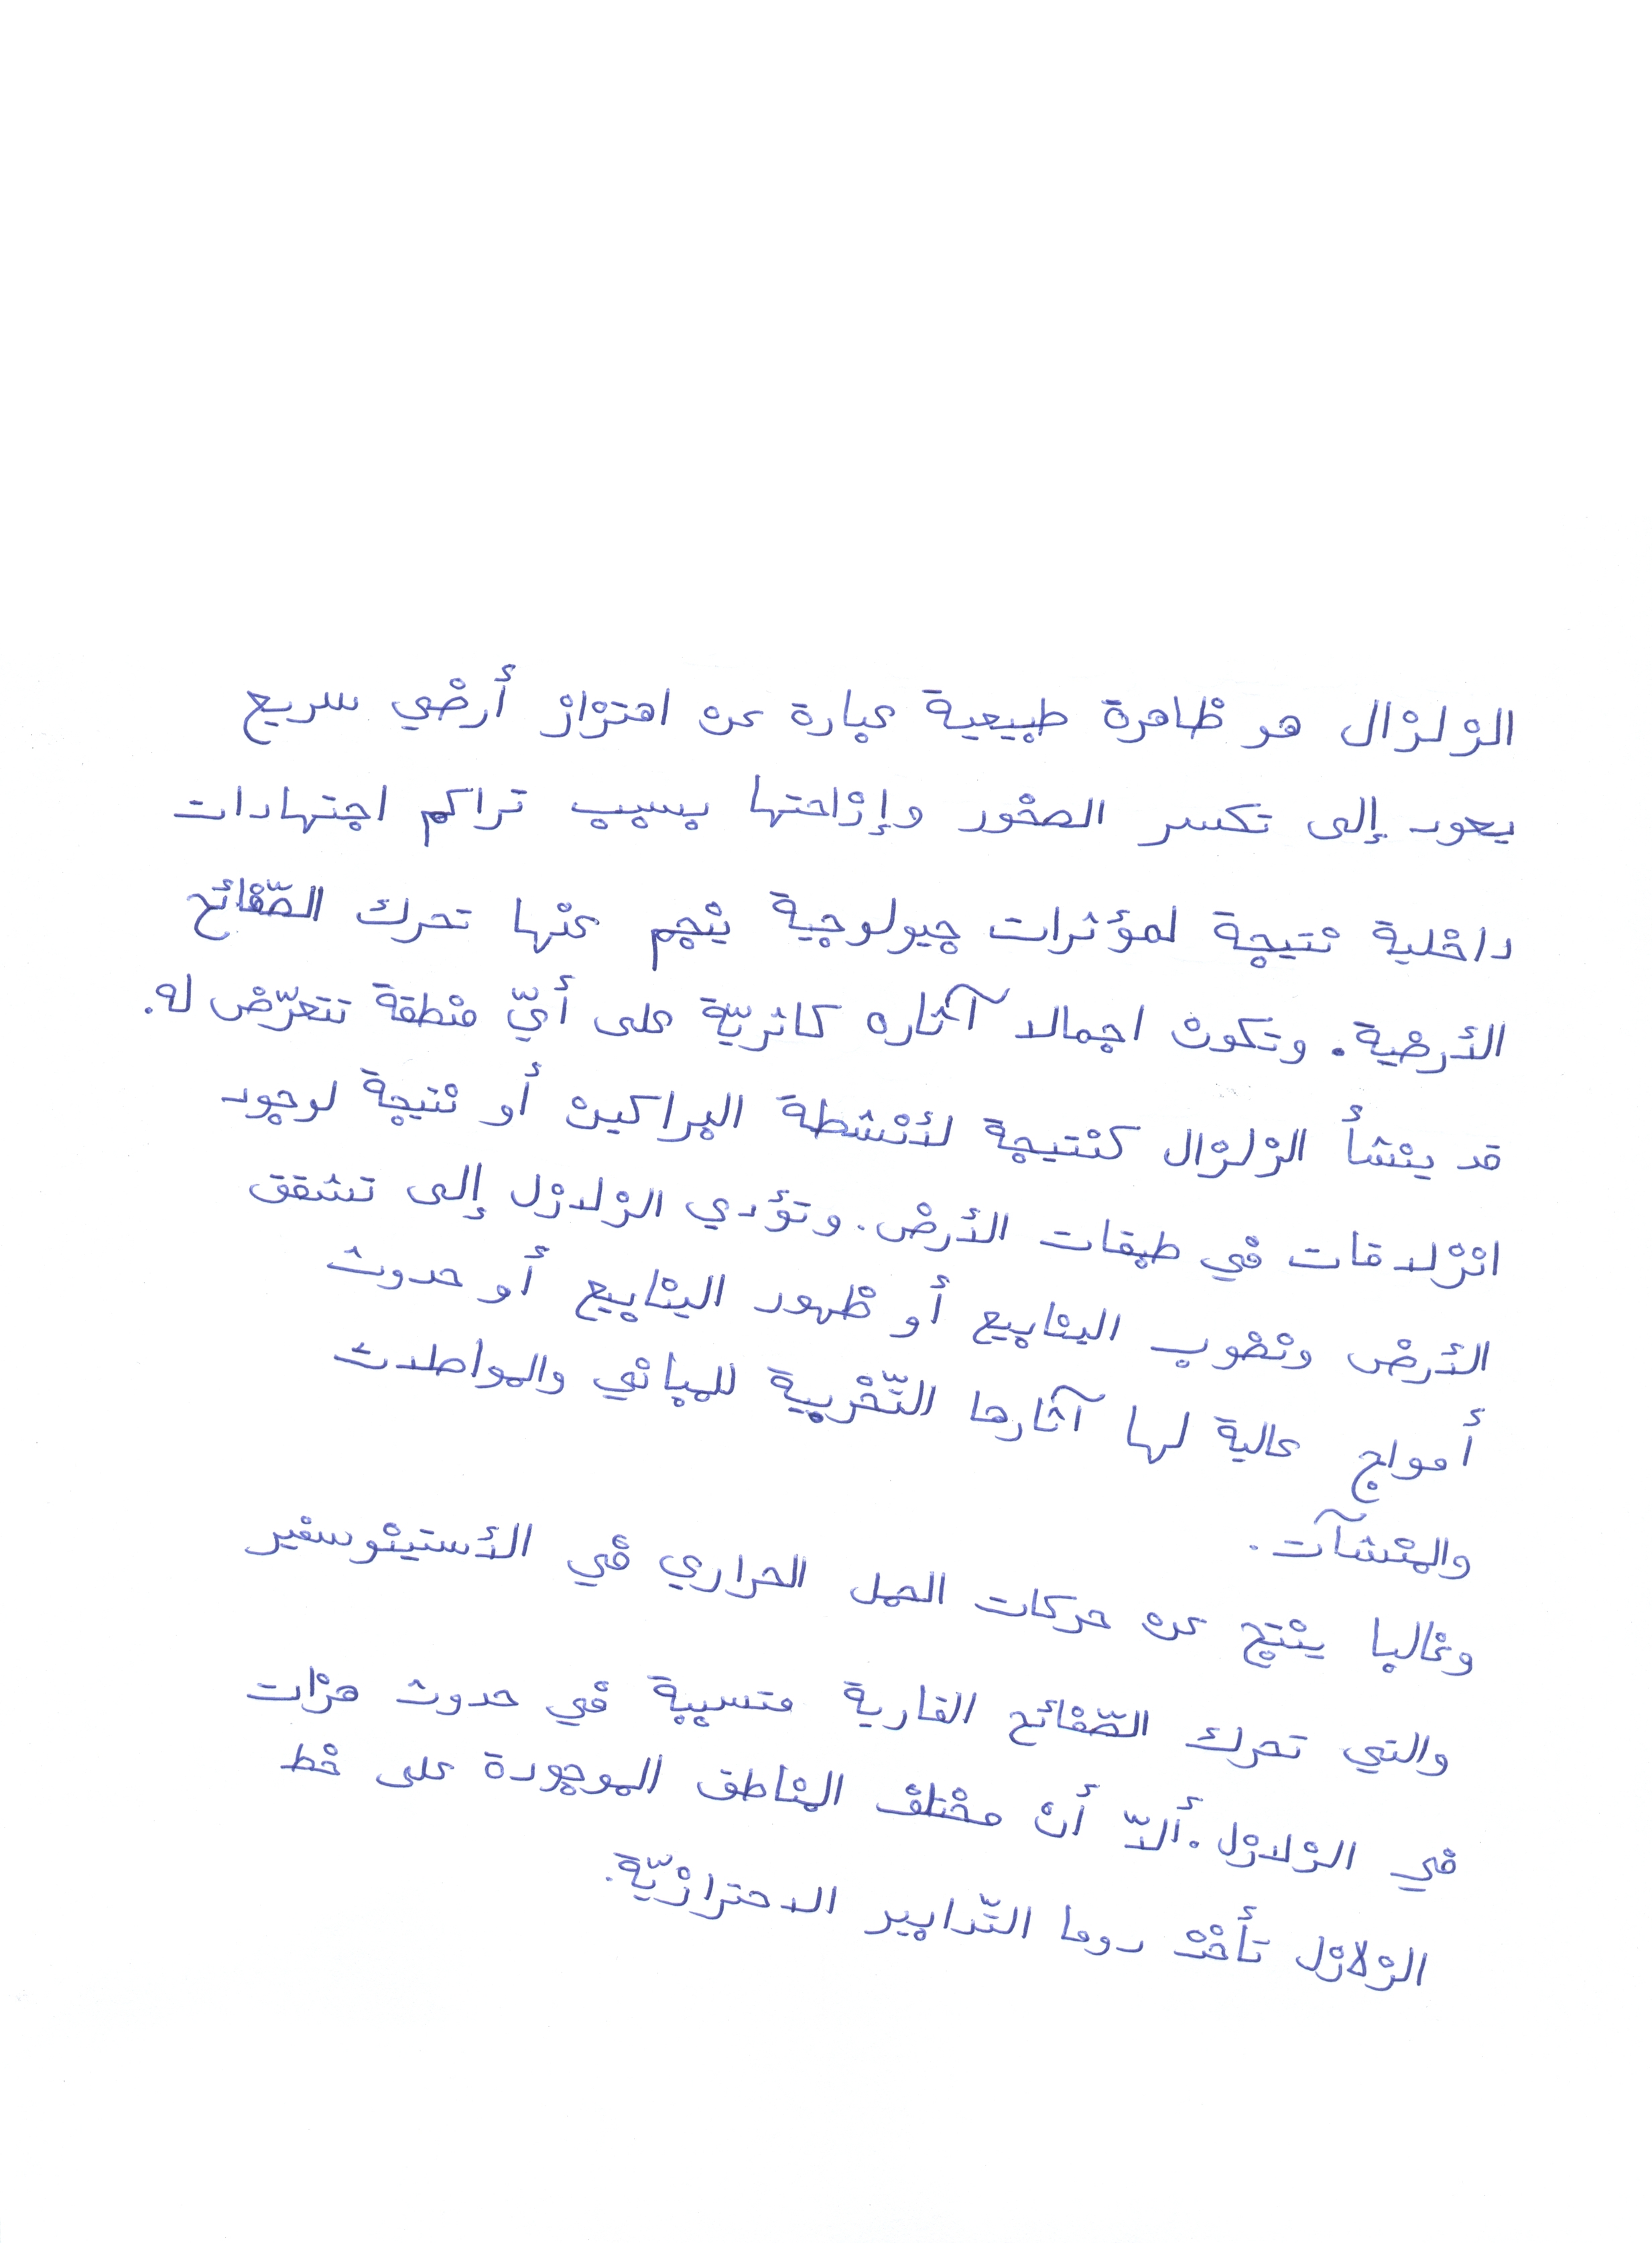 الزلزال هو ظاهرة طبيعية عبارة عن اهتزاز أرضي سريع
يعود إلى تكسر الصخور وإزاحتها بسبب تراكم اجتهادات
داخلية نتيجة لمؤثرات جيولوجية ينجم عنها تحرك الصّفائح
الأرضية. وتكون اجمالا آثاره كاثريّة على أيّ منطقة تتعرّض له.
قد ينشأ الزلزال كنتيجة لأنشطة البراكين أو نتيجة لوجود
انزلاقات في طبقات الأرض. وتؤدي الزلازل إلى تشقق
الأرض ونضوب الينابيع أو ظهور الينابيع أو حدوث
أمواج عالية لها آثارها التّخربية للمباني والمواطلات
والمنشآت.
وغالبا ينتج عن حركات الحمل الحراري في الأستينوسفير
والتي تحرك الصّفائح القارية متسببة في حدوث هزات
في الزلازل. ألاّ أن مختلف المناطق الموجودة على خط
الزلازل تأخذ دوما التّدابير الاحترازيّة.